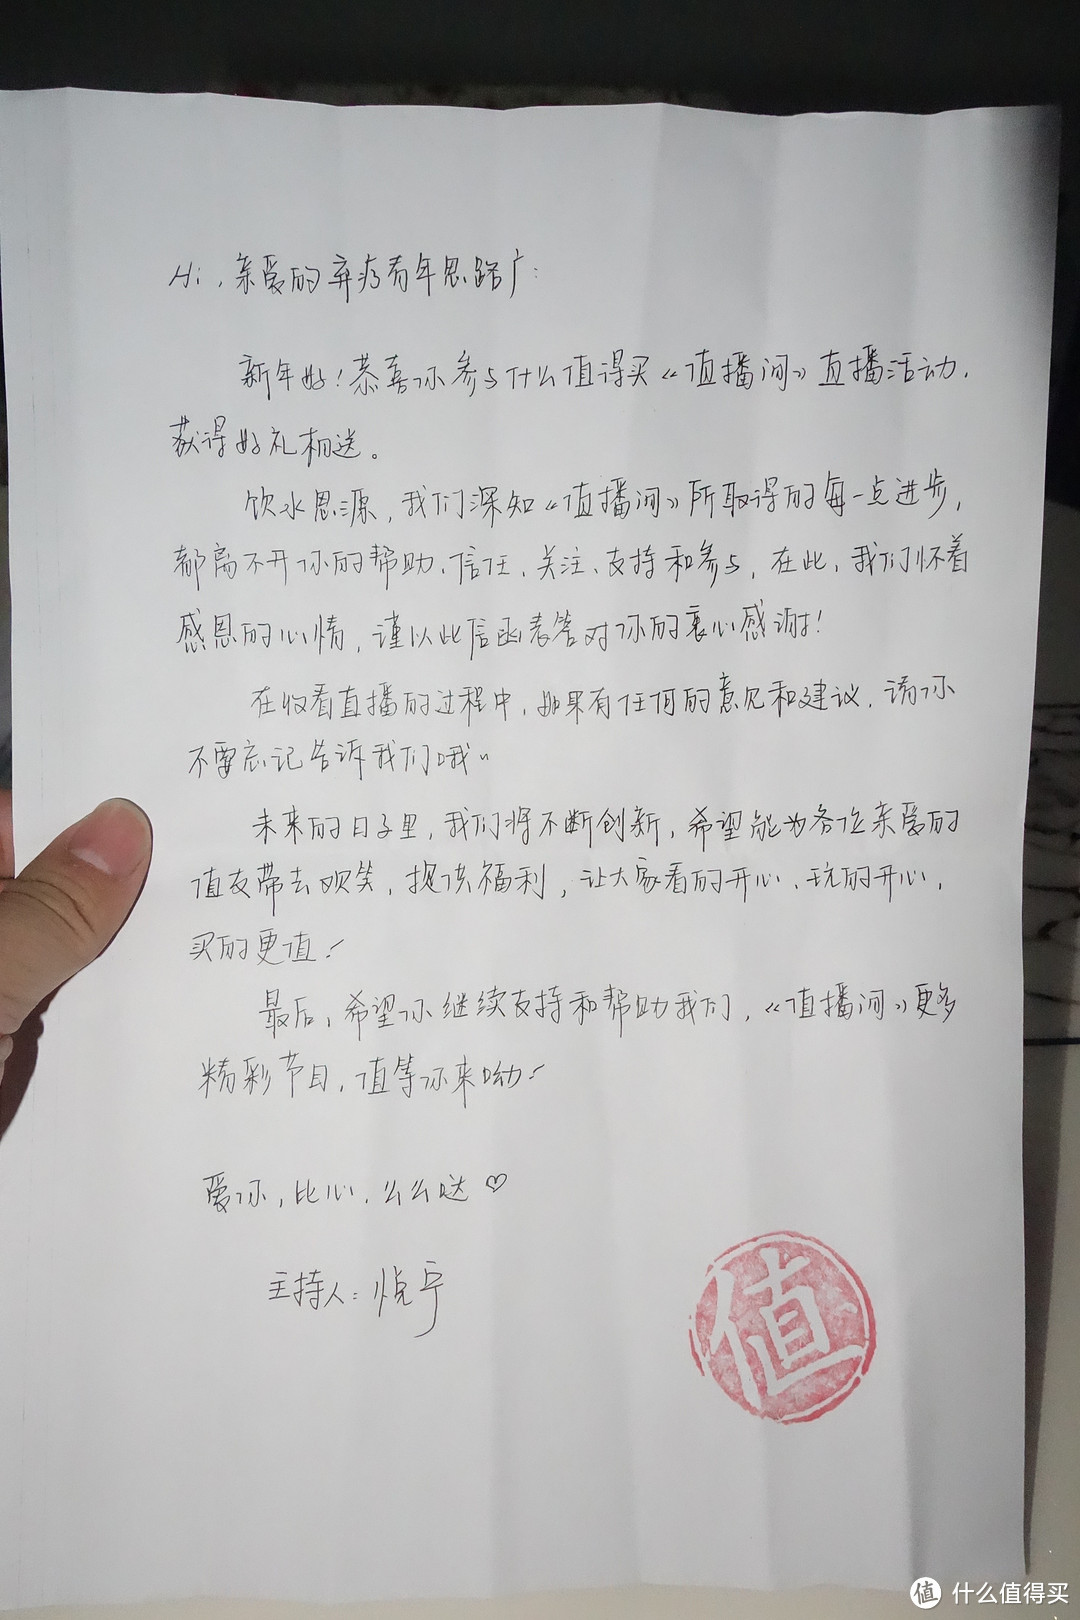 Hi，亲爱的弃疗青年思路广：
新年好！恭喜你参与什么值得买《值播间》直播活动，
获得好礼相送。
饮水思源，我们深知《值播间》所取得的每一点进步，
都离不开你的帮助、信任、关注、支持和参与，在此，我们怀着
感恩的心情，谨以此信函表答对你的衷心感谢！
在收看直播的过程中，如果有任何的意见和建议，请你
不要忘记告诉我们哦~
未来的日子里，我们将不断创新，希望能为各位亲爱的
值友带去欢笑，提供福利，让大家看的开心、玩的开心，
买的更值！
最后，希望你继续支持和帮助我们，《值播间》更多
精彩节目，值等你来呦！
爱你，比心，么么哒♡
主持人：悦宁
值
值 什么值得买